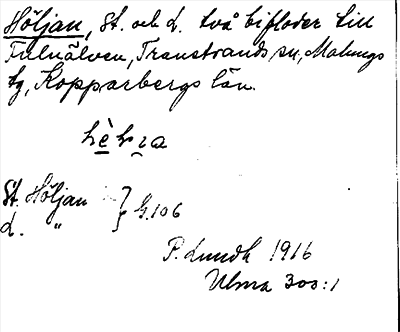 Höljan, St. och L. två bifloder till
Fulnälven, Transtrands sn, Malungs
tg, Kopparbergs län.
St. Höljan } h.106
L. "
P. Lundh 1916
Ulma 303:1